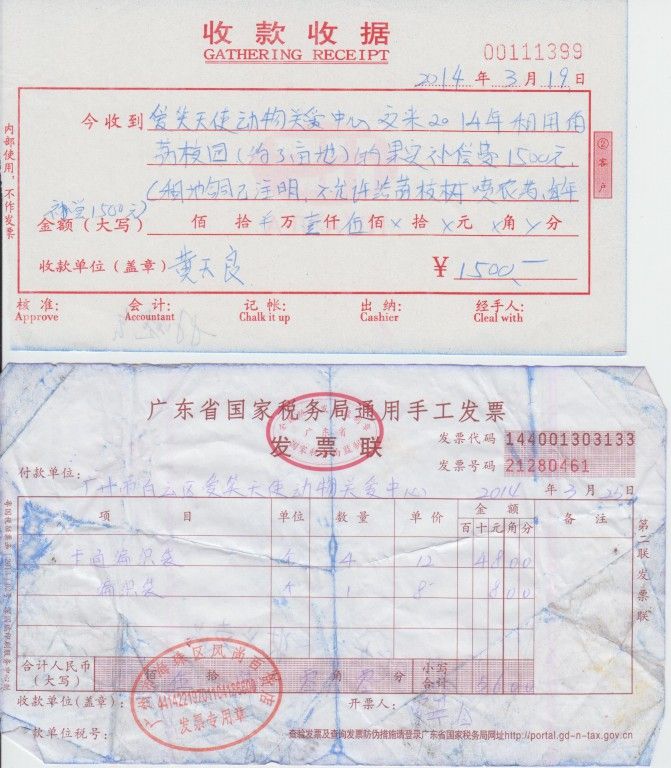 收款收据
GATHERING RECEIPT
00111399
2014 年 3 月 19 日
今收到 爱笑天使动物关爱中心 交来2014年租用
荔枝园(约3亩地)的果实补偿费1500元,
(租地 已注明,不允许给荔枝树喷农药,每年
补偿1500元)
金额(大写) 佰 拾 万 壹仟 伍佰 拾 元 角 分
收款单位(盖章) 黄天良 ¥ 1500
核准: 会计: 记帐: 出纳: 经手人:
Approve Accountant Chalk it up Cashier Cleal with
内部使用,不作发票
②客户
广东省国家税务局通用手工发票
发票联
发票代码 144001303133
发票号码 21280461
付款单位: 广州市白云区爱笑天使动物关爱中心 2014 年 3 月 日
项 目 单位 数量 单价 金额 备注
百十元角分
编织袋 个 4 12 4800
编织袋 个 1 8 800
合计人民币(大写) 佰 拾 元 角 分 小写合计 5600
收款单位(盖章): 开票人:
收款单位税号:
发票专用章
第二联发票联
查验发票及查询发票防伪措施请登录广东省国家税务局网址http://portal.gd-n-tax.gov.cn